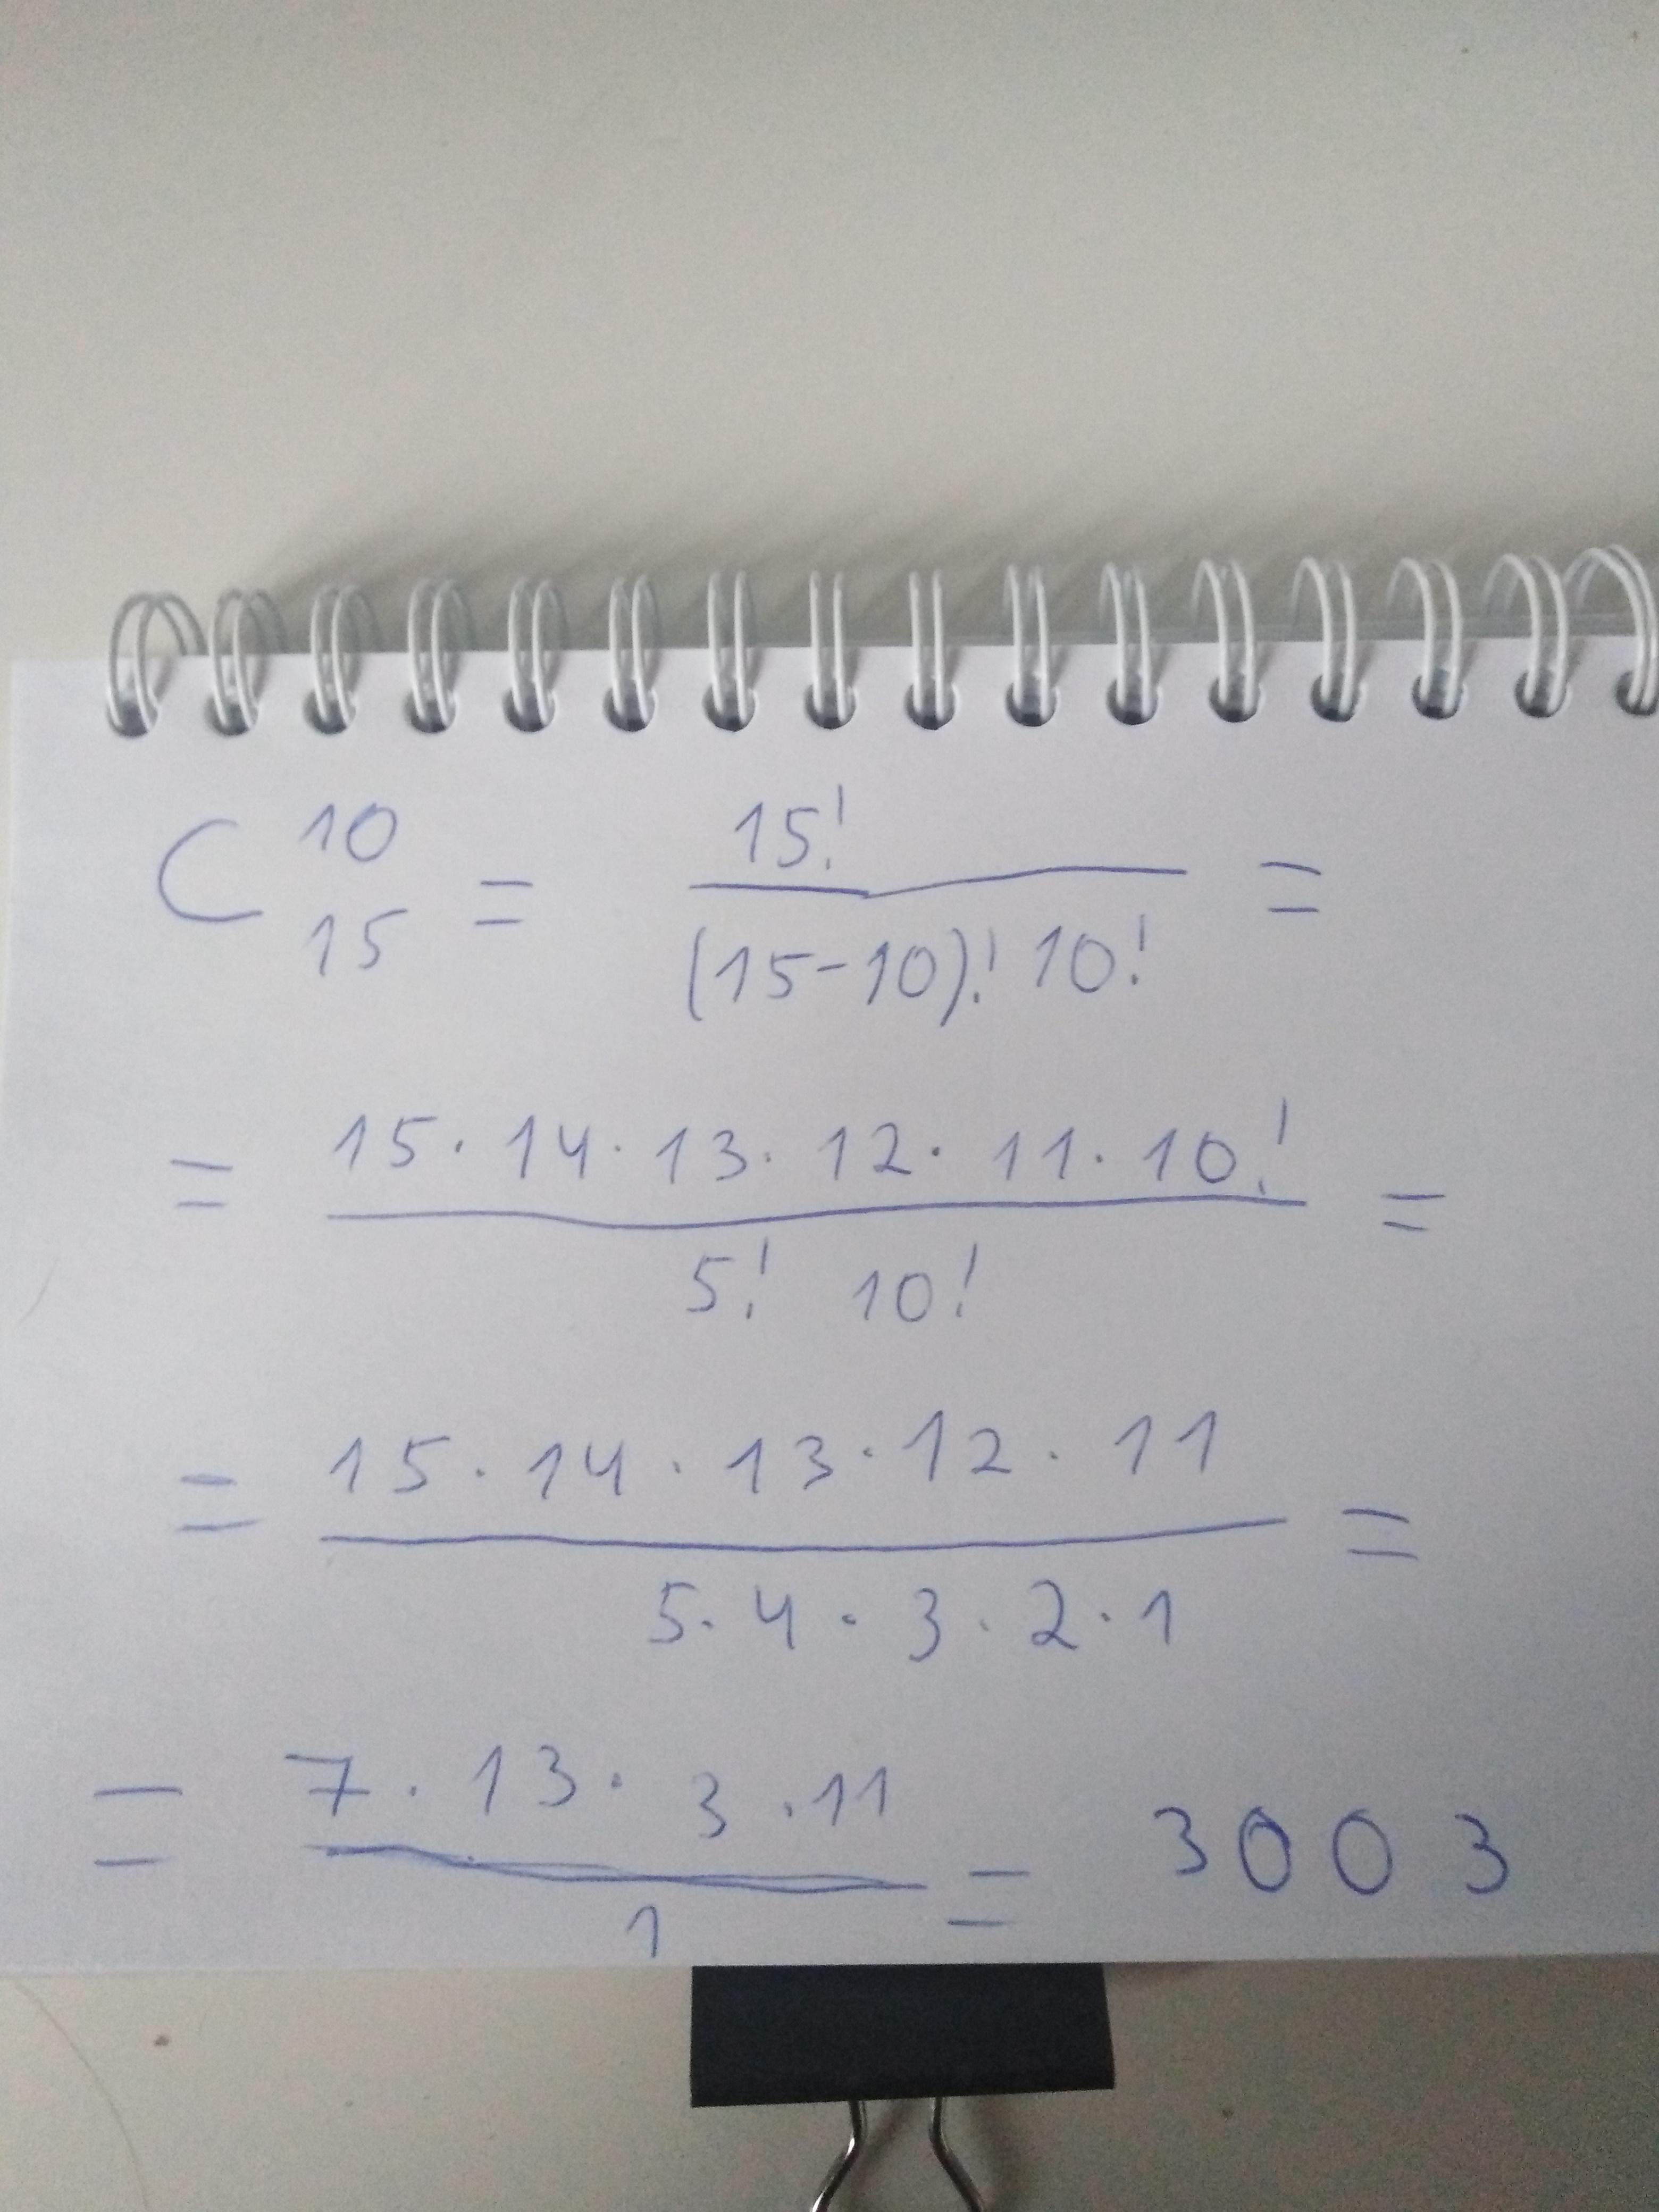 C 10 15 = 15! / (15-10)! 10! =
= 15 · 14 · 13 · 12 · 11 · 10! / 5! 10! =
= 15 · 14 · 13 · 12 · 11 / 5 · 4 · 3 · 2 · 1 =
= 7 · 13 · 3 · 11 / 1 = 3003